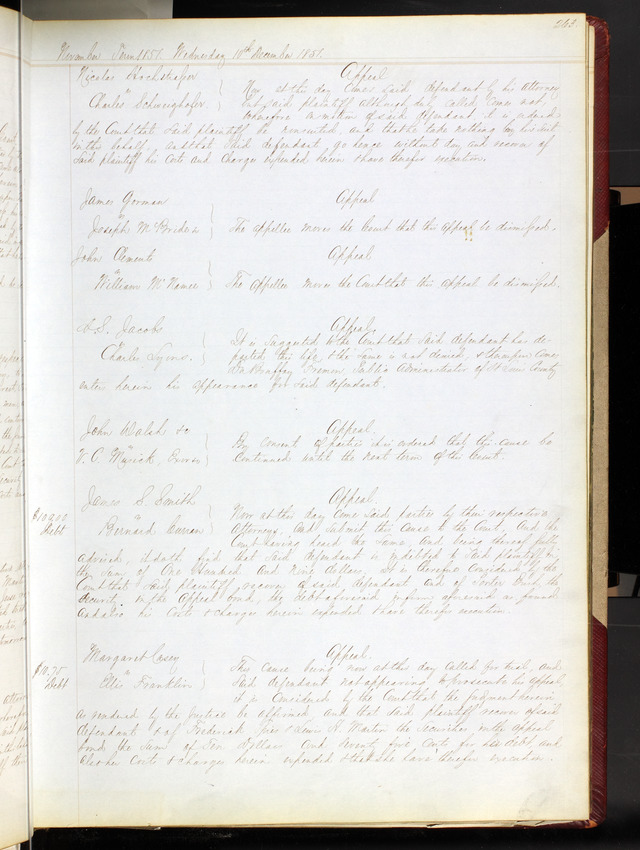 263.
November Term 1851. Wednesday 10th December 1851.
Nicolas Bockshafer
vs
Charles Schweighofer
Appeal
Now at this day comes said defendant by his attorney
but said plaintiff although duly called comes not.
Wherefore on motion of said defendant it is ordered
by the Court that said plaintiff be nonsuited, and that he take nothing by his suit
in this behalf. And that said defendant, go hence without day and recover of
said plaintiff his Costs and Charges expended herein & have therefor execution.
James Gorman
vs
Joseph McBride
Appeal
The appellee moves the Court that this appeal be dismissed.
John Clements
vs
William McNamee
Appeal
The appellee moves the Court that this appeal be dismissed.
Jacobs
vs
Charles Lyons.
Appeal.
It is suggested to the Court that said defendant has de-
parted this life, & the same is not denied, & thereupon comes
Public Administrator of St Louis County
enters herein his appearance for said defendant.
John Walsh
vs
V. C. Myrick,
Appeal.
By consent of parties it is ordered that this cause be
Continued until the next term of the Court.
James S. Smith
vs
Bernard Curran
$109.00
Debt
Appeal.
Now at this day come said parties by their respective
attorneys, and submit this cause to the Court, and the
Court having heard the same, and being thereof fully
advised, it doth find that said defendant is indebted to said plaintiff in
the sum of One Hundred and Nine dollars, It is therefore considered by the
Court that said plaintiff, recover of said defendant and of Porter the
security in the appeal bond, the debt aforesaid in form aforesaid as found
and also his Costs & charges herein expended & have therefor execution.
Margaret Casey
vs
Ellis Franklin
$10.75
Debt
Appeal.
This cause being now at this day called for trial, and
said defendant not appearing to prosecute his appeal,
it is Considered by the Court that the judgment herein
as rendered by the justice be affirmed and that said plaintiff recover of said
defendant & of Frederick & Lewis A. Martin the securities in the appeal
bond the sum of Ten dollars and Seventy five cents for her debt and
also her Costs & charges herein expended & that she have therefor execution.